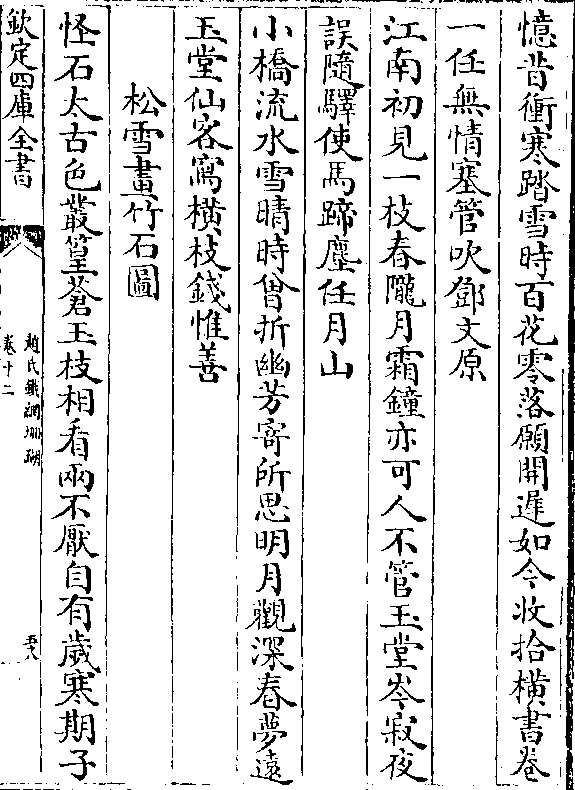 憶昔衝寒踏雪時百花零落願開遲如今收拾橫書卷
一任無情塞管吹鄧文原
江南初見一枝春隴月霜鐘亦可人不管玉堂岑寂夜
誤隨驛使馬蹄塵任月山
小橋流水雪晴時曾折幽芳寄所思明月觀深春夢遠
玉堂仙客寫橫枝錢惟善
松雪畫竹石圖
怪石太古色叢篁蒼玉枝相看兩不厭自有歲寒期子
欽定四庫全書
趙氏鐵網珊瑚
卷十二